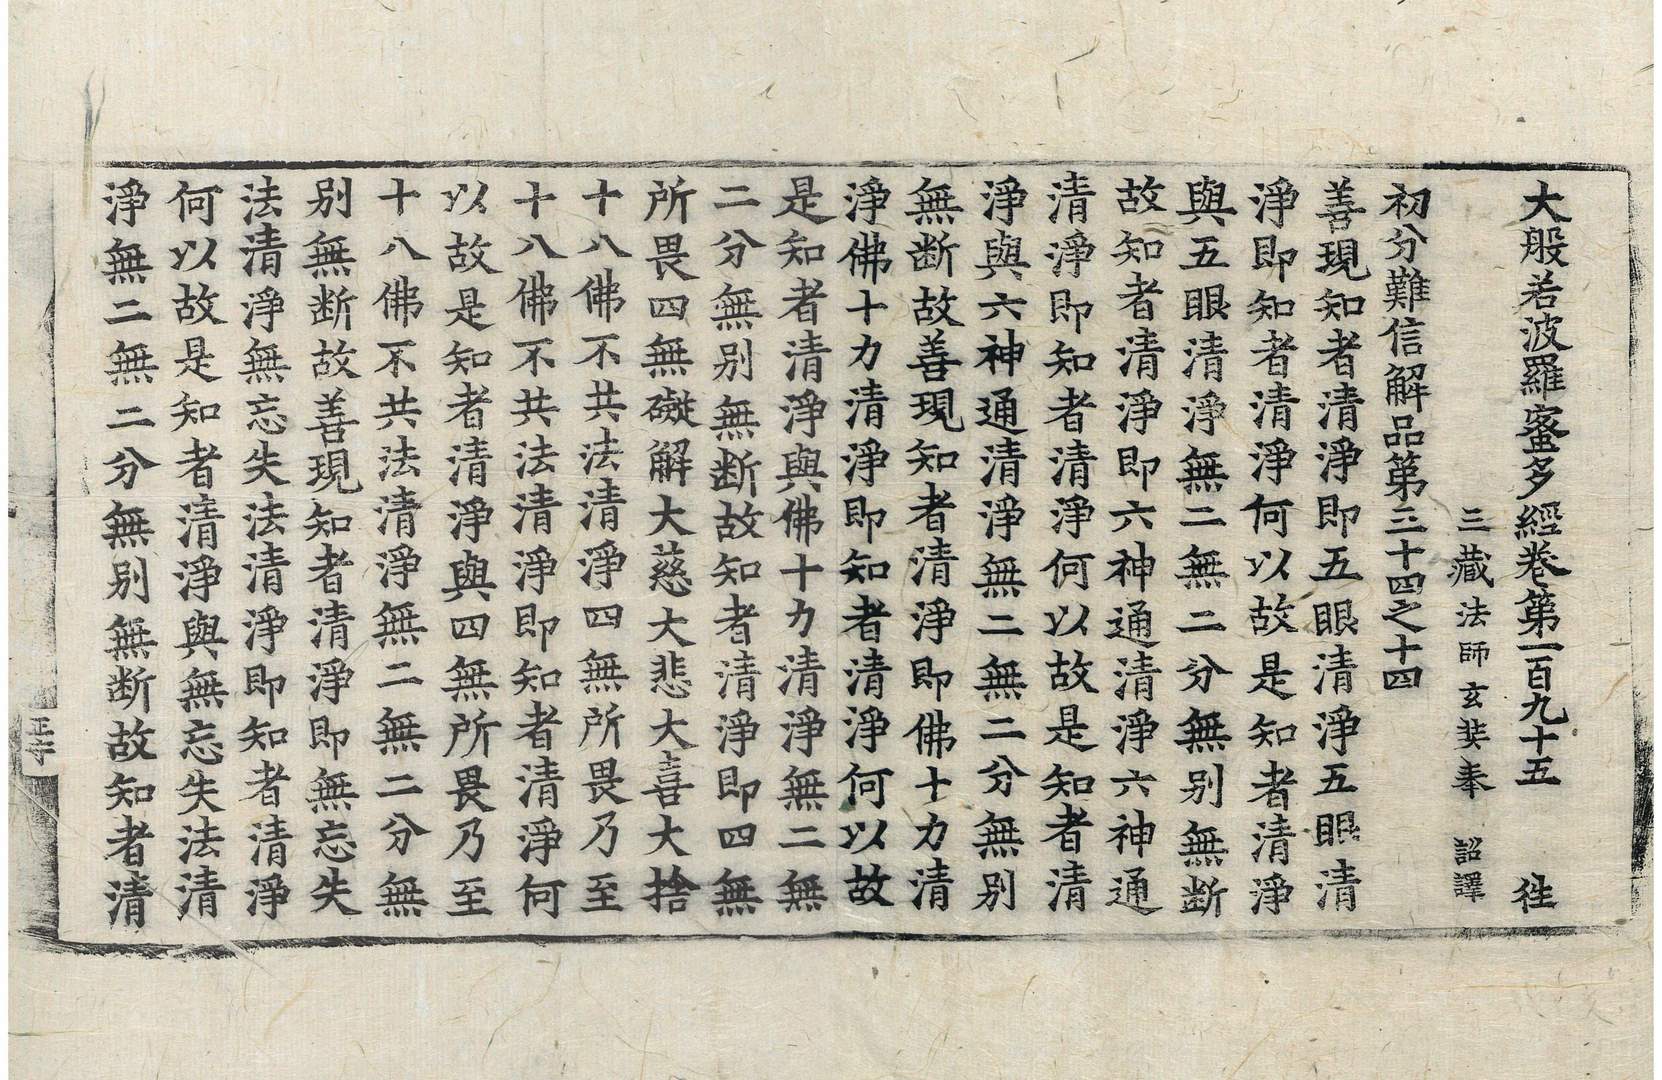 大般若波羅蜜多經卷第一百九十五 往
三藏法師玄奘奉 詔譯
初分難信解品第三十四之十四
善現知者清淨即五眼清淨五眼清
淨即知者清淨何以故是知者清淨
與五眼清淨無二無二分無別無断
故知者清淨即六神通清淨六神通
清淨即知者清淨何以故是知者清
淨與六神通清淨無二無二分無別
無断故善現知者清淨即佛十力清
淨佛十力清淨即知者清淨何以故
是知者清淨與佛十力清淨無二無
二分無別無断故知者清淨即四無
所畏四無礙解大慈大悲大喜大捨
十八佛不共法清淨四無所畏乃至
十八佛不共法清淨即知者清淨何
以故是知者清淨與四無所畏乃至
十八佛不共法清淨無二無二分無
別無断故善現知者清淨即無忘失
法清淨無忘失法清淨即知者清淨
何以故是知者清淨與無忘失法清
淨無二無二分無別無断故知者清